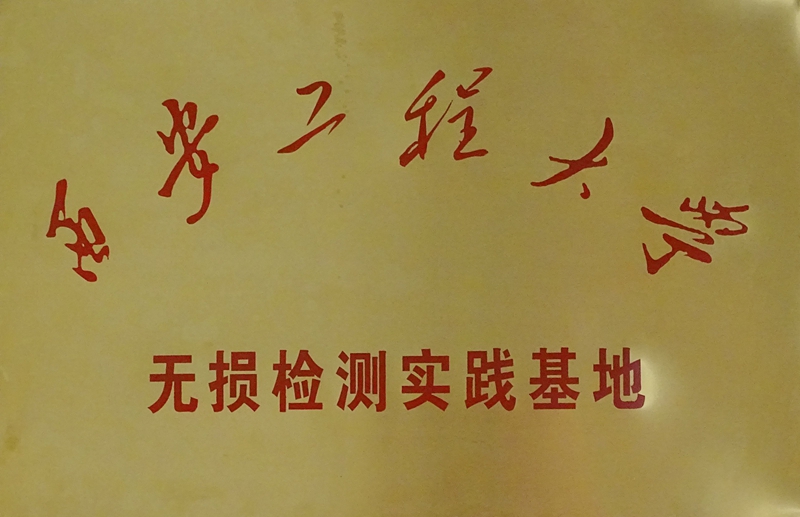 西安工程大学
无损检测实践基地